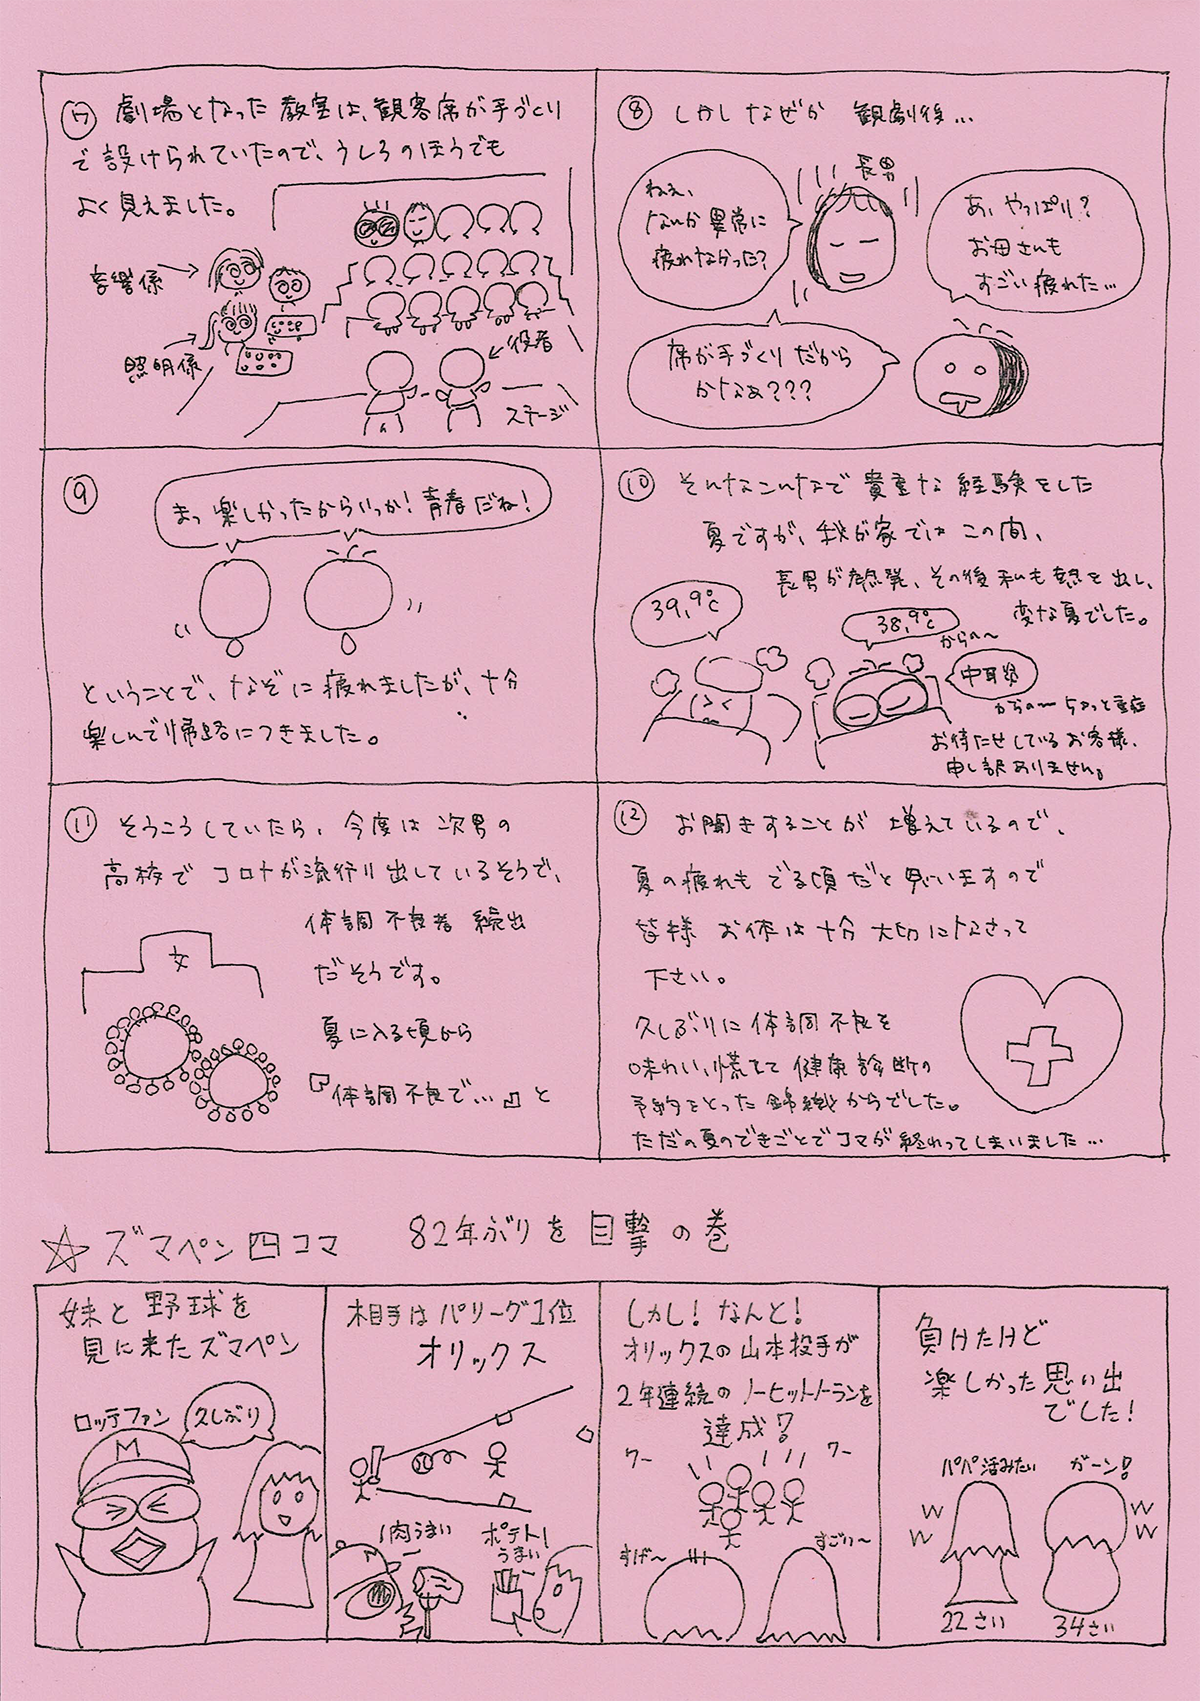 ⑦ 劇場となった教室は、観客席が手づくり
で設けられていたので、うしろのほうでも
よく見えました。
音響係
照明係
役者
ステージ
⑧ しかしなぜか 観劇後…
長男
ねぇ、
なんか異常に
疲れなかった?
あ、やっぱり?
お母さんも
すごい疲れた…
席が手づくりだから
かなぁ???
⑨
まっ楽しかったからいっか!青春だね!
ということで、なぞに疲れましたが、十分
楽しんで帰路につきました。
⑩ そんなこんなで貴重な経験をした
夏ですが、我が家ではこの間、
長男が発熱、その後私も熱を出し、
変な夏でした。
39,9℃
38,9℃
からの〜
中耳炎
からの〜ちょっと重症
お待たせしているお客様、
申し訳ありません。
⑪ そうこうしていたら、今度は次男の
高校でコロナが流行り出しているそうで、
体調不良者 続出
だそうです。
文
夏に入る頃から
『体調不良で…』と
⑫ お聞きすることが増えているので、
夏の疲れもでる頃だと思いますので
皆様 お体は十分大切になさって
下さい。
久しぶりに体調不良を
味わい、慌てて健康診断の
予約をとった錦織からでした。
ただの夏のできごとでコマが終わってしまいました…
☆ズマペン四コマ 82年ぶりを目撃の巻
妹と野球を
見に来たズマペン
ロッテファン
久しぶり
M
相手はパリーグ1位
オリックス
肉うまい
ポテト
うまい
M
しかし!なんと!
オリックスの山本投手が
2年連続のノーヒットノーランを
達成!
ワー
ワー
すげ〜
すごい〜
負けたけど
楽しかった思い出
でした!
パパ活みたい
ガーン!
W
W
W
W
22さい
34さい